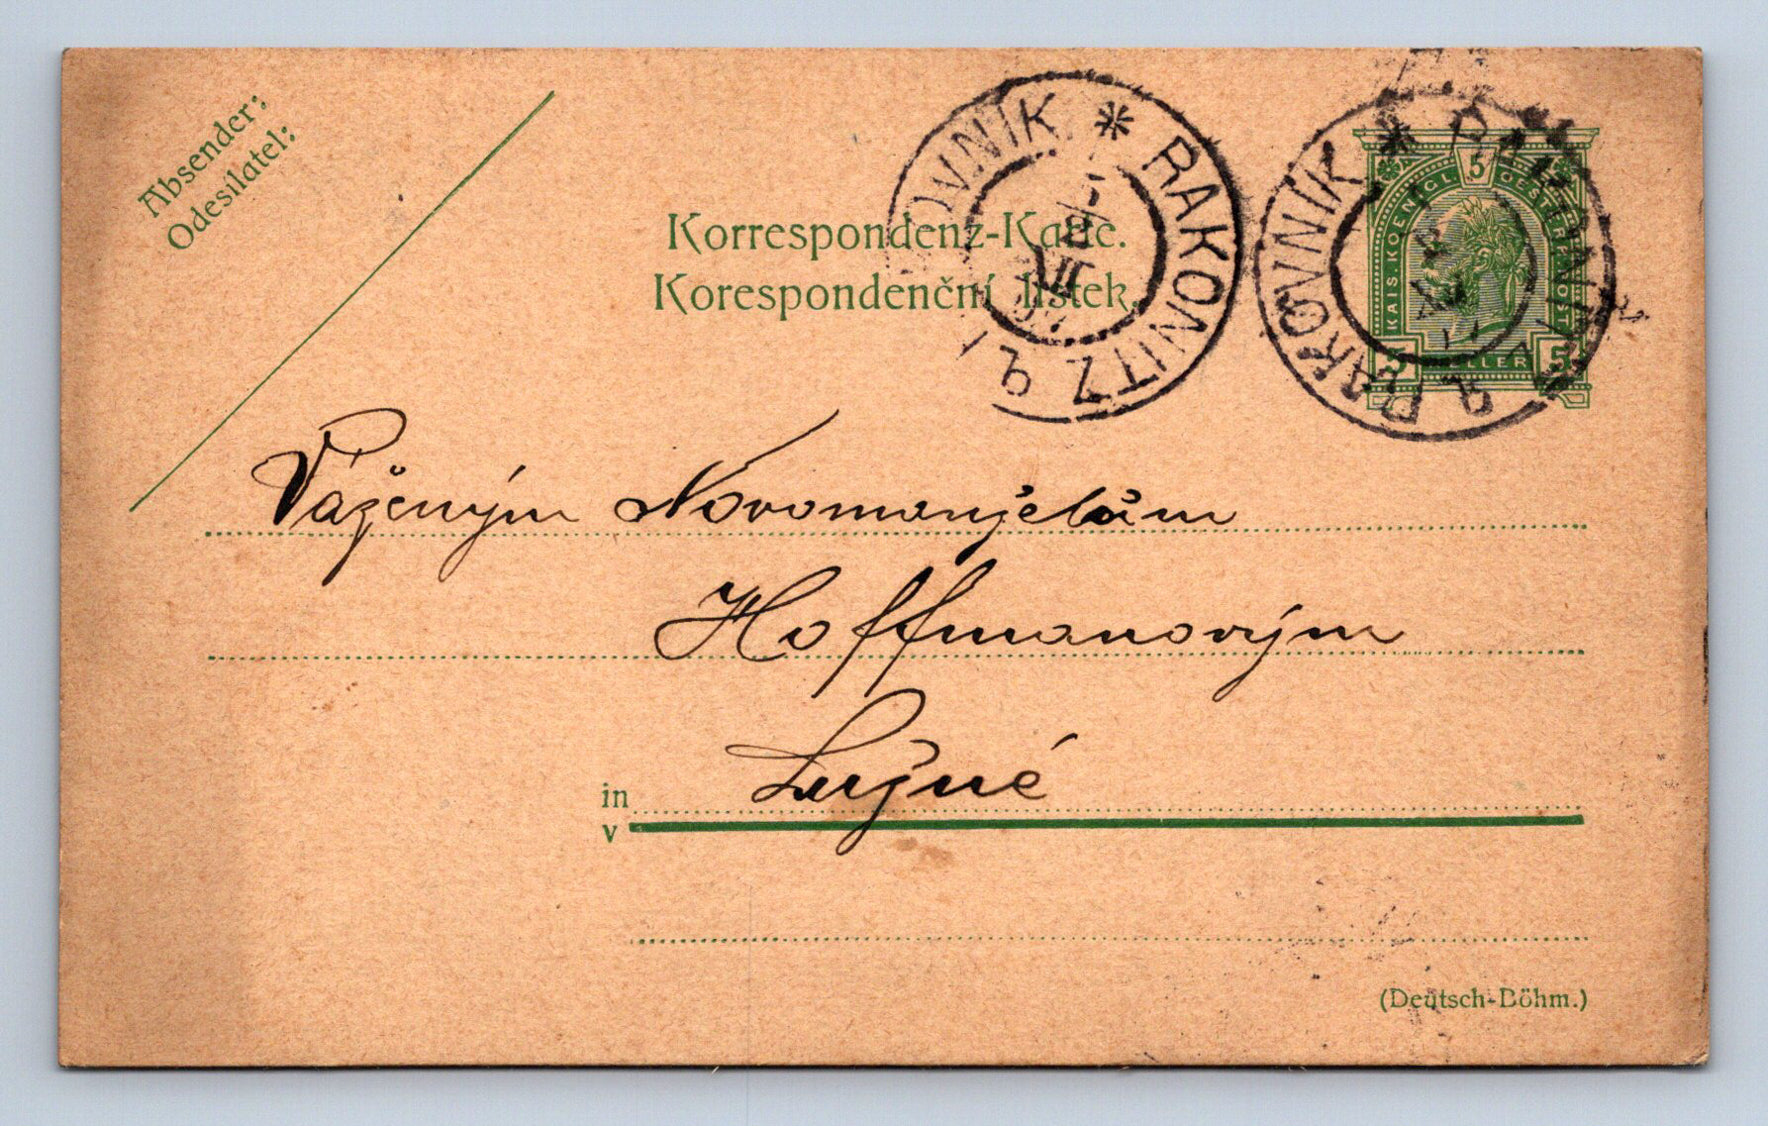 Absender:
Odesílatel:
Korrespondenz-Karte.
Korespondenční lístek.
RAKOVNÍK * RAKONITZ 2
5 KAIS. KOENIGL. OESTERR. POST
5 HELLER 5
Váženým Novomanželům
Hoffmanovým
in
v
Lužné
(Deutsch-Böhm.)